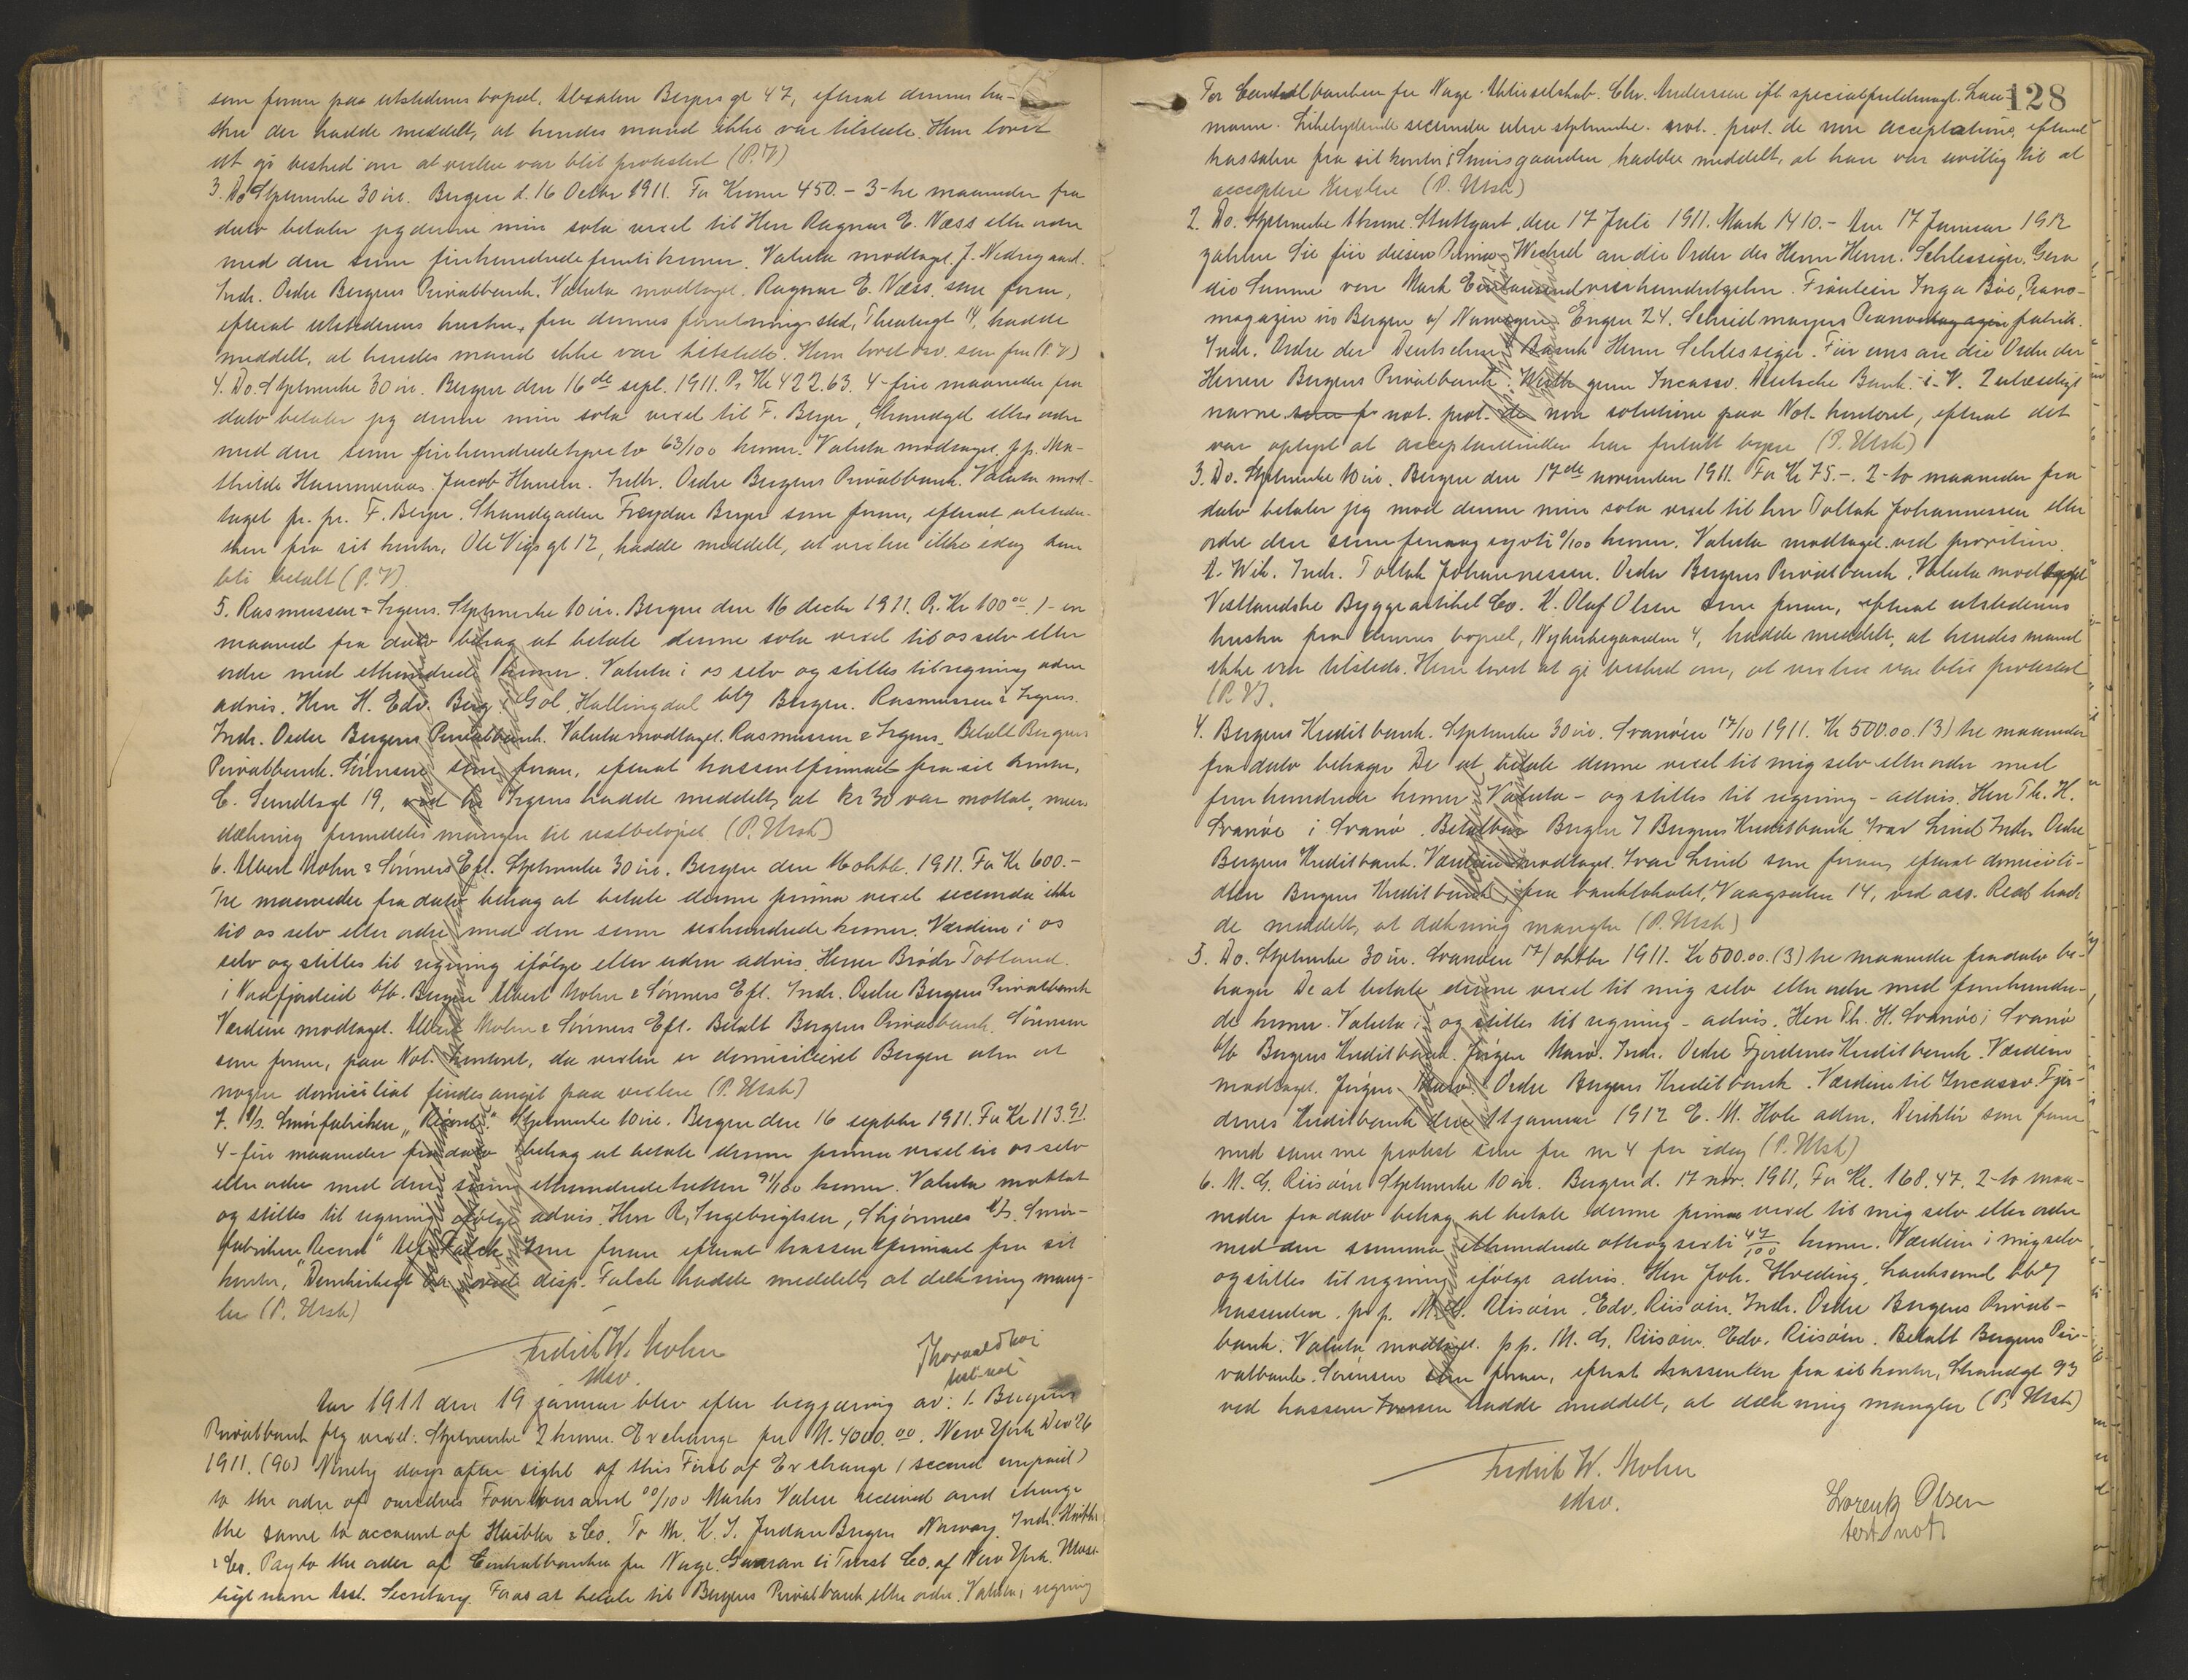 som foran paa utstederens bopæl, Absalon Beyers gt 47, efterat dennes hu-
stru der hadde meddelt, at hendes mand ikke var tilstede. Hun lovet
at gi besked om at vexlen var blit protestert (P.V)
3. Do Stplmerke 30 øre. Bergen d. 16 Octbr 1911. For Kroner 450.- 3-tre maaneder fra
dato betaler jeg denne min sola vexel til Herr Ragnar E. Næss eller ordre
med den sum firehundredefemti kroner. Valuta modtaget. J. Nedregaard.
Indr. Ordre Bergens Privatbank. Valuta modtaget. Ragnar E. Næss. som foran,
efterat utstederens hustru, fra dennes forretningssted, Theatergt 14, hadde
meddelt, at hendes mand ikke var tilstede. Hun lovet osv. som før (P.V)
4. Do. Stplmerke 30 øre. Bergen den 16de sept. 1911. Pr Kr 422.63. 4-fire maaneder fra
dato betaler jeg denne min sola vexel til F. Beyer, Strandgt eller ordre
med den sum firehundredetyveto 63/100 kroner. Valuta modtaget. pp. Ma-
thilde Hammeraas. Jacob Hansen. Indr. Ordre Bergens Privatbank. Valuta mod-
taget pr. pr. F. Beyer. Strandgaden Frydar Beyer som foran, efterat utstede-
ren fra sit kontor, Ole Vigs gt 12, hadde meddelt, at vexlen ikke idag kan
bli betalt (P.V).
5. Rasmussen & Irgens. Stplmerke 10 øre. Bergen den 16 decbr 1911. Pr. Kr 100 00. 1- en
maaned fra dato behag at betale denne sola vexel til os selv eller
ordre med ethundrede kroner. Valuta i os selv og stilles til regning uden
advis. Herr H. Edv. Berg, Gol, Hallingdal bty Bergen. Rasmussen & Irgens.
Indr. Ordre Bergens Privatbank. Valuta modtaget. Rasmussen & Irgens. Betalt Bergens
Privatbank. Sörensen som foran, efterat trassentfirmaet fra sit kontor,
C. Sundtsgt 19, ved hr Irgens hadde meddelt, at kr 30 var mottat, men
dækning fremdeles mangler til restbeløpet (P. Utsk)
6. Albert Mohn & Sønners Eft. Stplmerke 30 øre. Bergen den 16 oktb. 1911. For Kr 600.-
Tre maaneder fra dato behag at betale denne prima vexel secunda ikke
til os selv eller ordre med den sum sexhundrede kroner. Værdien i os
selv og stilles til regning ifölge eller uden advis. Herrer Brödr Totland.
i Nordfjordeid b/b. Bergen Albert Mohn & Sönners Eft. Indr. Ordre Bergens Privatbank
Værdien modtaget. Albert Mohn & Sönners Eft. Betalt Bergens Privatbank. Sörensen
som foran, paa Not. kontoret, da vexlen er domicilieret Bergen uten at
nogen domiciliat findes angit paa vexlen (P. Utsk)
7. A/s. Smörfabriken "Record". Stplmerke 10 øre. Bergen den 16 septbr 1911. For Kr 113.91.
4-fire maaneder fra dato behag at betale denne prima vexel til os selv
eller ordre med den sum ethundredetretten 91/100 kroner. Valuta mottat
og stilles til regning ifölge advis. Herr R. Ingebrigtsen, Stjörnnes A/s. Smör-
fabriken Record" Alf Falck som foran efterat trassentfirmaet fra sit
kontor, Domkirkegt ved disp. Falck hadde meddelt, at dækning mang-
ler (P. Utsk)
Fredrik W. Mohn
Msv.
Thorvald
test. not
Aar 1911 den 19 januar blev efter begjæring av: 1. Bergens
Privatbank flg vexel: Stplmerke 2 kroner. Exchange for M. 4000.00. New York Dec 26
1911. (90) Ninety days after sight of this First of Exchange (second unpaid)
to the order of ourselves Four thousand 00/100 Marks Value received and charge
the same to account of Huibler & Co. To Mr. K. J. Jordan Bergen Norway. Indr.
& Co. Pay to the order of Centralbanken for Norge. Guaranti Trust Co. of New York.
navn Asst. Secretary. For os at betale til Bergens Privatbank eller ordre. Valuta i regning
128
For Centralbanken for Norge. Aktieselskab. Chr. Anderssen ifl specialfuldmagt.
mann. Likelydende secunda uten stplmerke. not. prot. de non acceptatione, efterat
trassaten fra sit kontor, Smörsgaarden, hadde meddelt, at han var uvillig til at
acceptere vexlen (P. Utsk)
2. Do. Stplmerke 1 krone. Stuttgart, den 17 Juli 1911. Mark 1410.- Am 17 Januar 1912
zahlen Sie für diesen Prima Wechsel an die Order des Herrn Herm. Schlessiger. Gera
die Summe von Mark Eintausendvierhundertzehn. Fräulein Inga Böe, Piano-
magazin in Bergen a/ Norwegen. Engen 24. Schiedmayers Pianomagazin fabrik.
Indr. Ordre der Deutschen Bank Herm Schlessiger. Für uns an die Ordre der
Herren Bergens Privatbank. Werth zum Incasso. Deutsche Bank. i. V. 2 ulæselige
navne som f not. prot. de non solutione paa Not. kontoret, efterat det
var oplyst at acceptantinden har forlatt byen (P. Utsk)
3. Do. Stplmerke 10 øre. Bergen den 17de november 1911. For Kr 75.-. 2-to maaneder fra
dato betaler jeg mod denne min sola vexel til herr Tollak Johannessen eller
ordre den sum femogsyvti 0/100 kroner. Valuta modtaget ved provition.
A. Wik. Indr. Tollak Johannessen. Ordre Bergens Privatbank. Valuta modtaget
Vestlandske Byggeartikel Co. K. Olaf Olsen som foran, efterat utstederens
hustru fra dennes bopæl, Nykirkegaarden 4, hadde meddelt, at hendes mand
ikke var tilstede. Hun lovet at gi besked om, at vexlen var blit protestert
(P.V).
4. Bergens Kreditbank. Stplmerke 30 øre. Svanöen 17/10 1911. Kr 500.00. (3) tre maaneder
fra dato behager De at betale denne vexel til mig selv eller ordre med
femhundrede kroner. Valuta - og stilles til regning - advis. Herr Th. H.
Svanöe i Svanö. Betalbar Bergen i Bergens Kreditbank Ivar Lind Indr. Ordre
Bergens Kreditbank. Værdien modtaget. Ivar Lind som foran, efterat domicilia-
ten Bergens Kreditbank, fra banklokalet, Vaagsalm 14, ved ass. Reab had-
de meddelt, at dækning mangler (P. Utsk)
5. Do. Stplmerke 30 øre. Svanöen 17/oktbr 1911. Kr 500.00. (3) tre maaneder fra dato be-
hager De at betale denne vexel til mig selv eller ordre med femhundre-
de kroner. Valuta i og stilles til regning - advis. Herr Th. H. Svanöe i Svanö
b/b Bergens Kreditbank. Jörgen Indr. Ordre Fjordenes Kreditbank. Værdien
modtaget. Jörgen Ordre Bergens Kreditbank. Værdien til Incasso. Fjor-
denes Kreditbank den 11 januar 1912 E. M. Hole adm. Direktör som foran
med samme protest som for nr 4 for idag (P. Utsk)
6. M. G. Riisöen Stplmerke 10 øre. Bergen d. 17 nov. 1911, For Kr. 168.47. 2-to maa-
neder fra dato behag at betale denne prima vexel til mig selv eller ordre
med den summa ethundrede otteogsexti 47/100 kroner. Værdien i mig selv
og stilles til regning ifölge advis. Herr Joh. Hveding, Lauksund bby
trassenten. p.p. M. G. Riisöen. Edv. Riisöen. Indr. Ordre Bergens Privat-
bank. Valuta modtaget. p.p. M. G. Riisöen. Edv. Riisöen. Betalt Bergens Pri-
vatbank. Sörensen som foran, efterat trassenten fra sit kontor, Strandgt 93
ved kasserer Iversen hadde meddelt, at dækning mangler (P. Utsk)
Fredrik W. Mohn
Msv.
Lorentz Olsen
test. not.